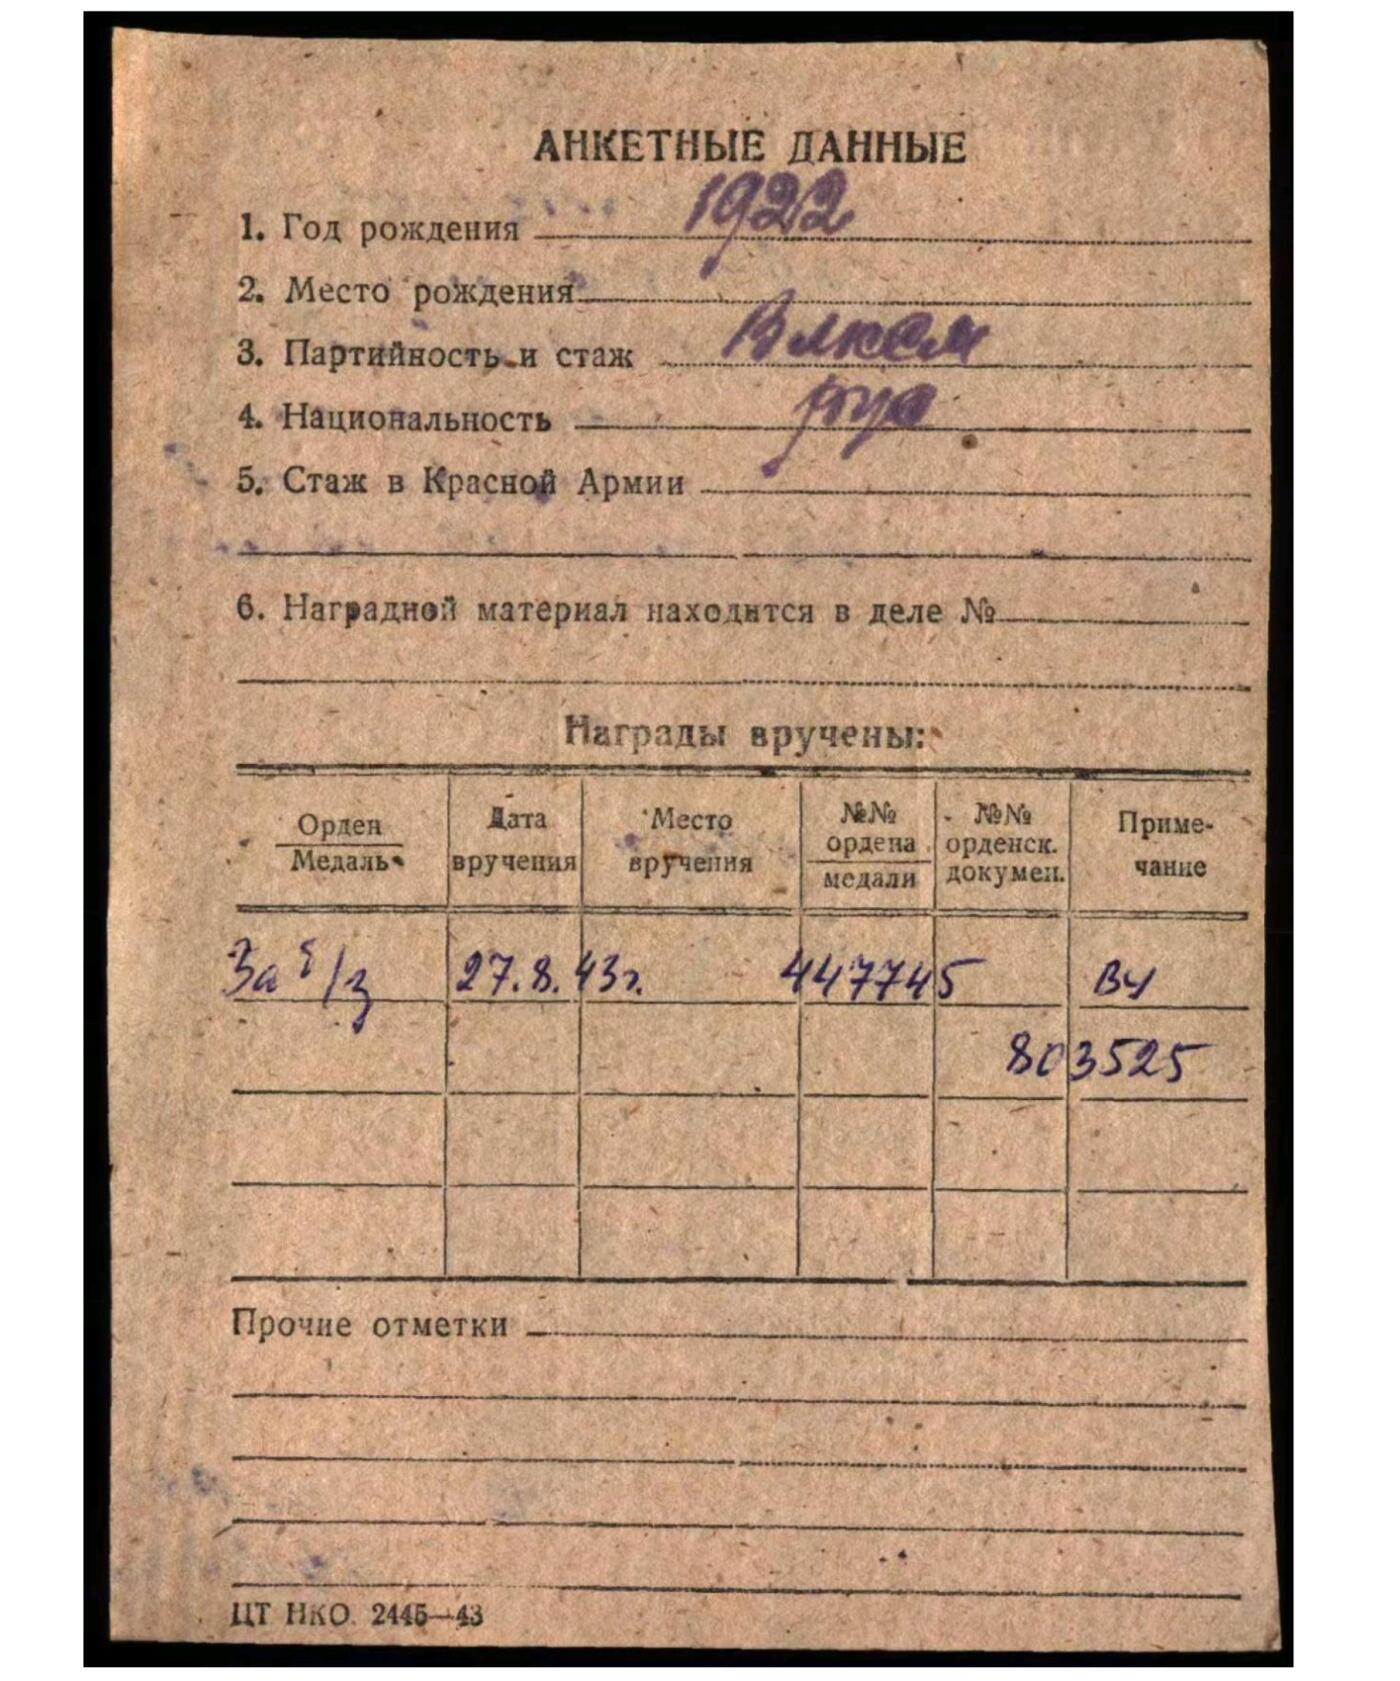 АНКЕТНЫЕ ДАННЫЕ
1. Год рождения 1922
2. Место рождения
3. Партийность и стаж Влксм
4. Национальность рус
5. Стаж в Красной Армии
6. Наградной материал находится в деле №
Награды вручены:
Орден Медаль Дата вручения Место вручения №№ ордена медали №№ орденск. докумен. Приме-чание
За б/з 27.8.43г. 447745 ВУ
803525
Прочие отметки
ЦТ НКО. 2445—43